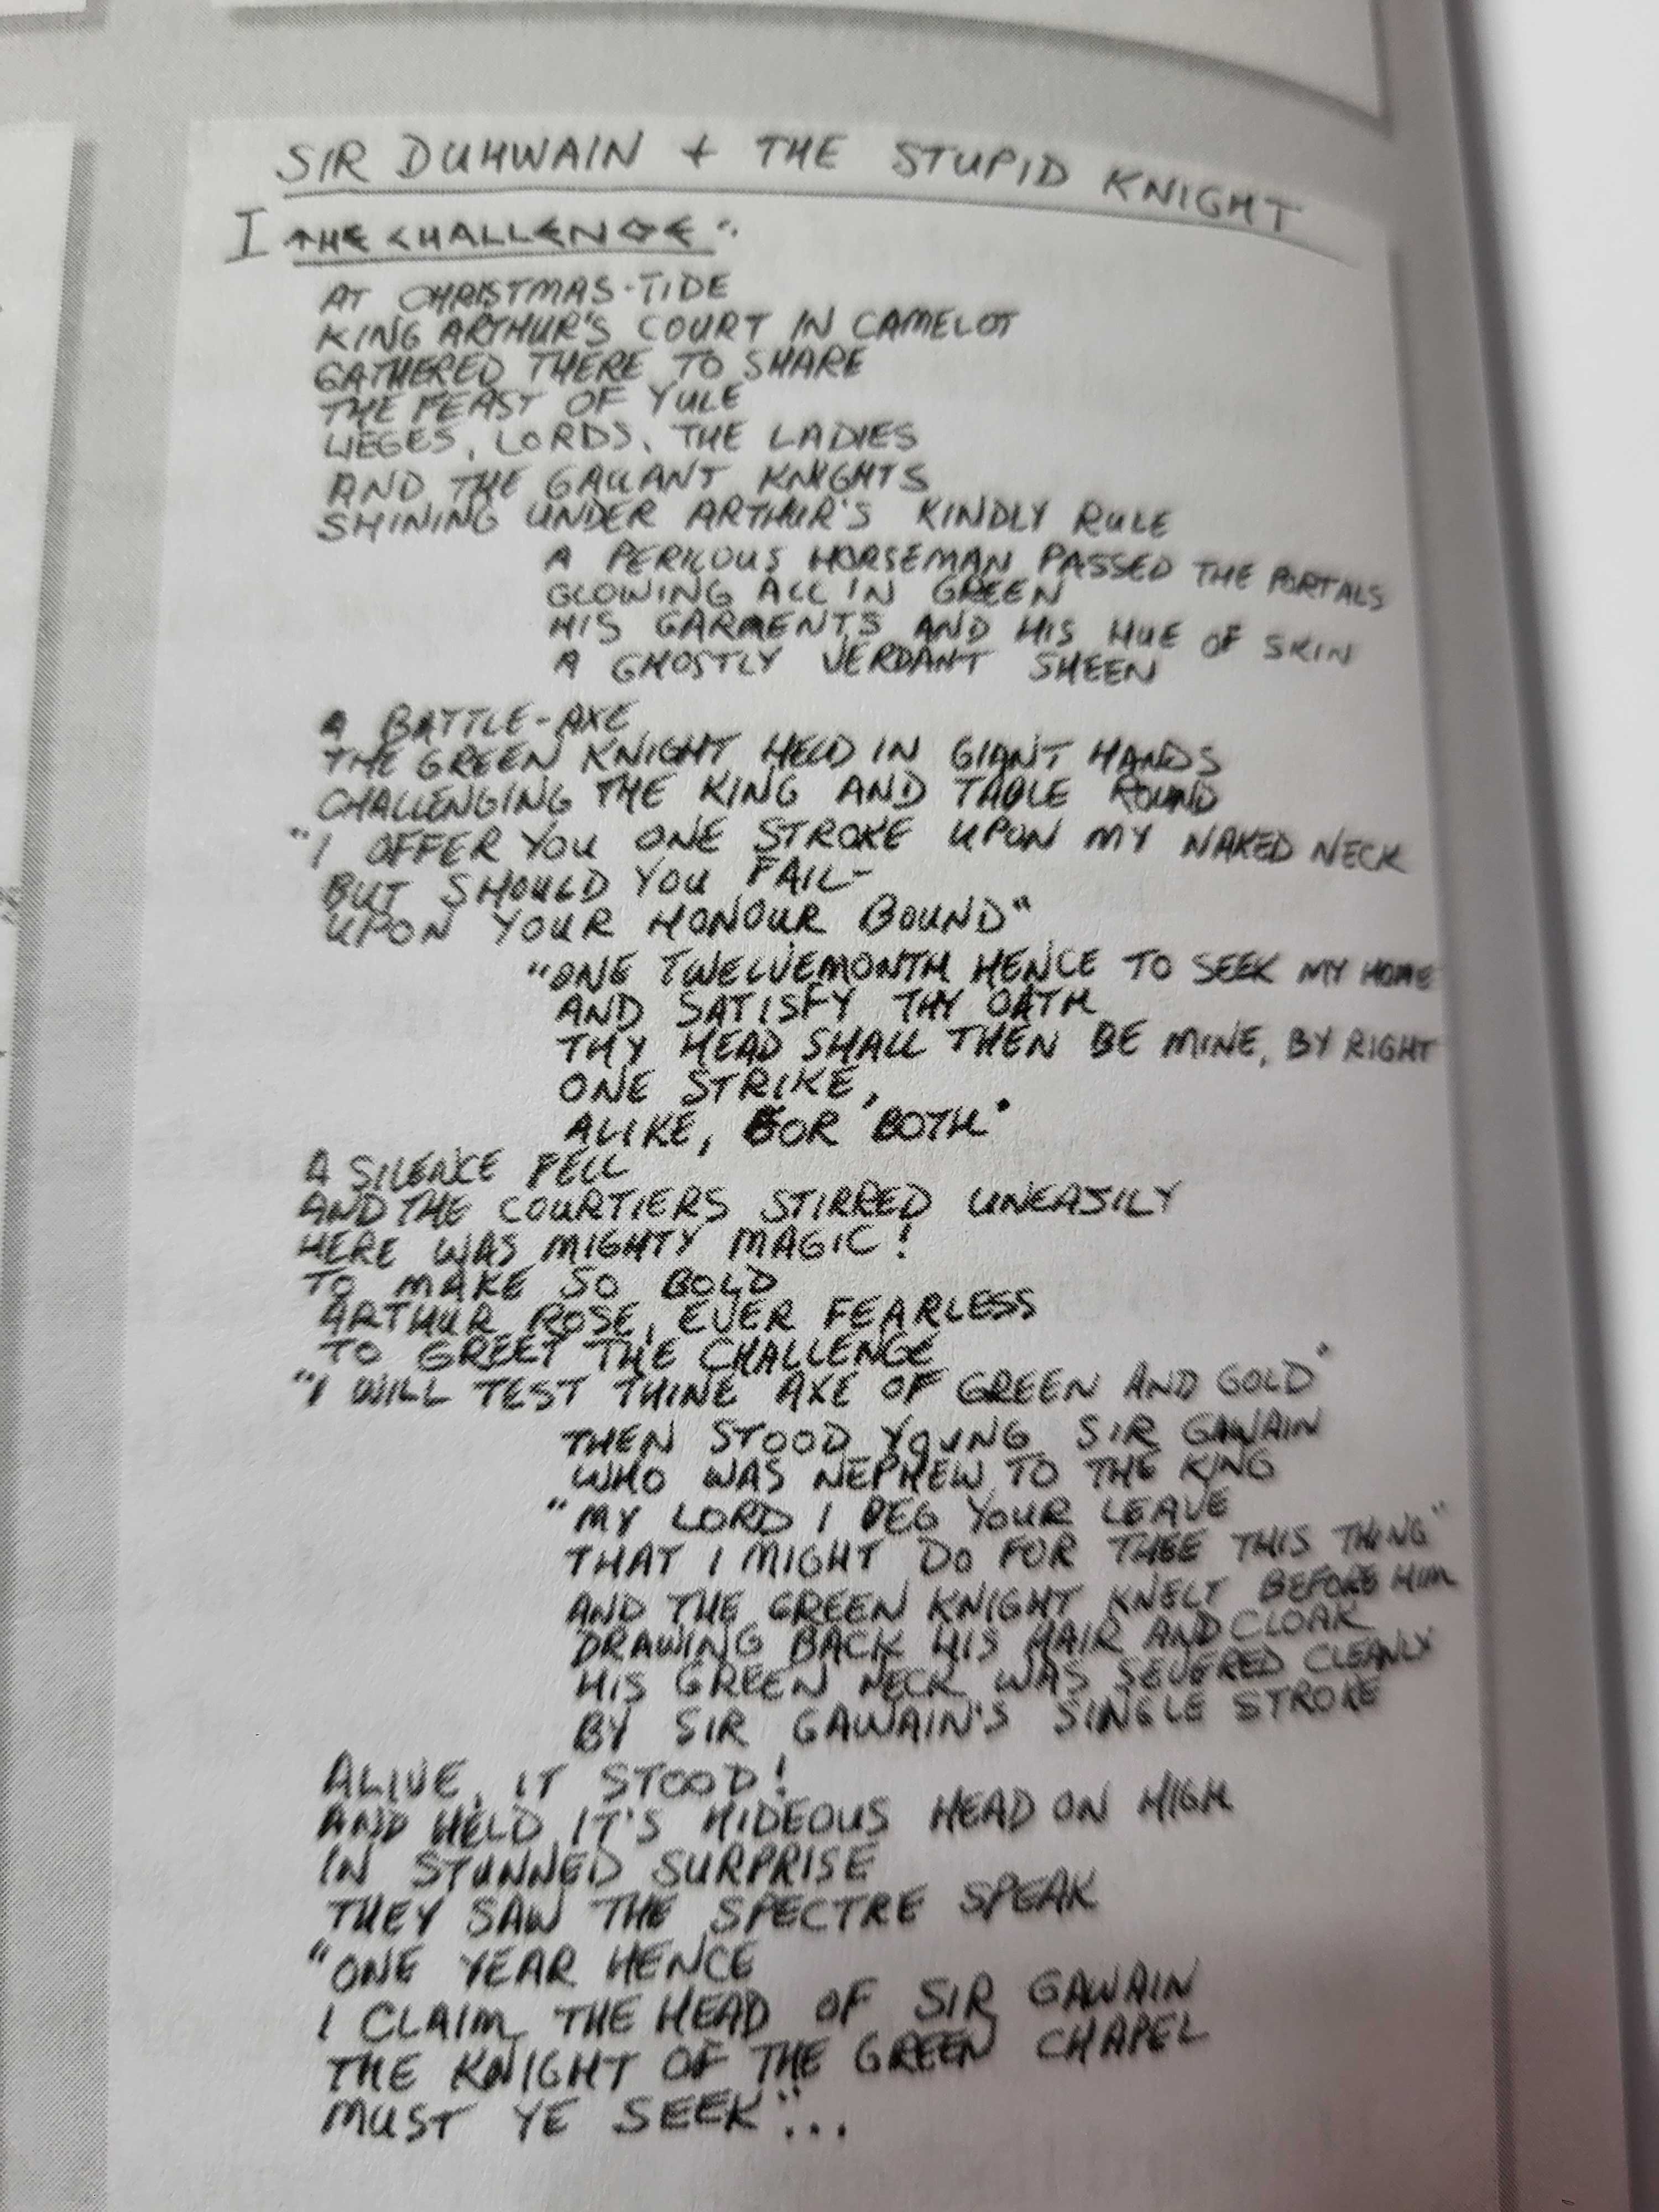 SIR DUHWAIN + THE STUPID KNIGHT
I THE CHALLENGE
AT CHRISTMAS-TIDE
KING ARTHUR'S COURT IN CAMELOT
GATHERED THERE TO SHARE
THE FEAST OF YULE
LIEGES, LORDS, THE LADIES
AND THE GALLANT KNIGHTS
SHINING UNDER ARTHUR'S KINDLY RULE
A PERILOUS HORSEMAN PASSED THE PORTALS
GLOWING ALL IN GREEN
HIS GARMENTS AND HIS HUE OF SKIN
A GHOSTLY VERDANT SHEEN
A BATTLE-AXE
THE GREEN KNIGHT HELD IN GIANT HANDS
CHALLENGING THE KING AND TABLE ROUND
"I OFFER YOU ONE STROKE UPON MY NAKED NECK
BUT SHOULD YOU FAIL-
UPON YOUR HONOUR BOUND"
"ONE TWELVEMONTH HENCE TO SEEK MY HOME
AND SATISFY THY OATH
THY HEAD SHALL THEN BE MINE, BY RIGHT
ONE STRIKE,
ALIKE, FOR BOTH"
A SILENCE FELL
AND THE COURTIERS STIRRED UNEASILY
HERE WAS MIGHTY MAGIC!
TO MAKE SO BOLD
ARTHUR ROSE, EVER FEARLESS
TO GREET THE CHALLENGE
"I WILL TEST THINE AXE OF GREEN AND GOLD"
THEN STOOD YOUNG SIR GAWAIN
WHO WAS NEPHEW TO THE KING
"MY LORD I BEG YOUR LEAVE
THAT I MIGHT DO FOR THEE THIS THING"
AND THE GREEN KNIGHT KNELT BEFORE HIM
DRAWING BACK HIS HAIR AND CLOAK
HIS GREEN NECK WAS SEVERED CLEANLY
BY SIR GAWAIN'S SINGLE STROKE
ALIVE, IT STOOD!
AND HELD IT'S HIDEOUS HEAD ON HIGH
IN STUNNED SURPRISE
THEY SAW THE SPECTRE SPEAK
"ONE YEAR HENCE
I CLAIM THE HEAD OF SIR GAWAIN
THE KNIGHT OF THE GREEN CHAPEL
MUST YE SEEK"...